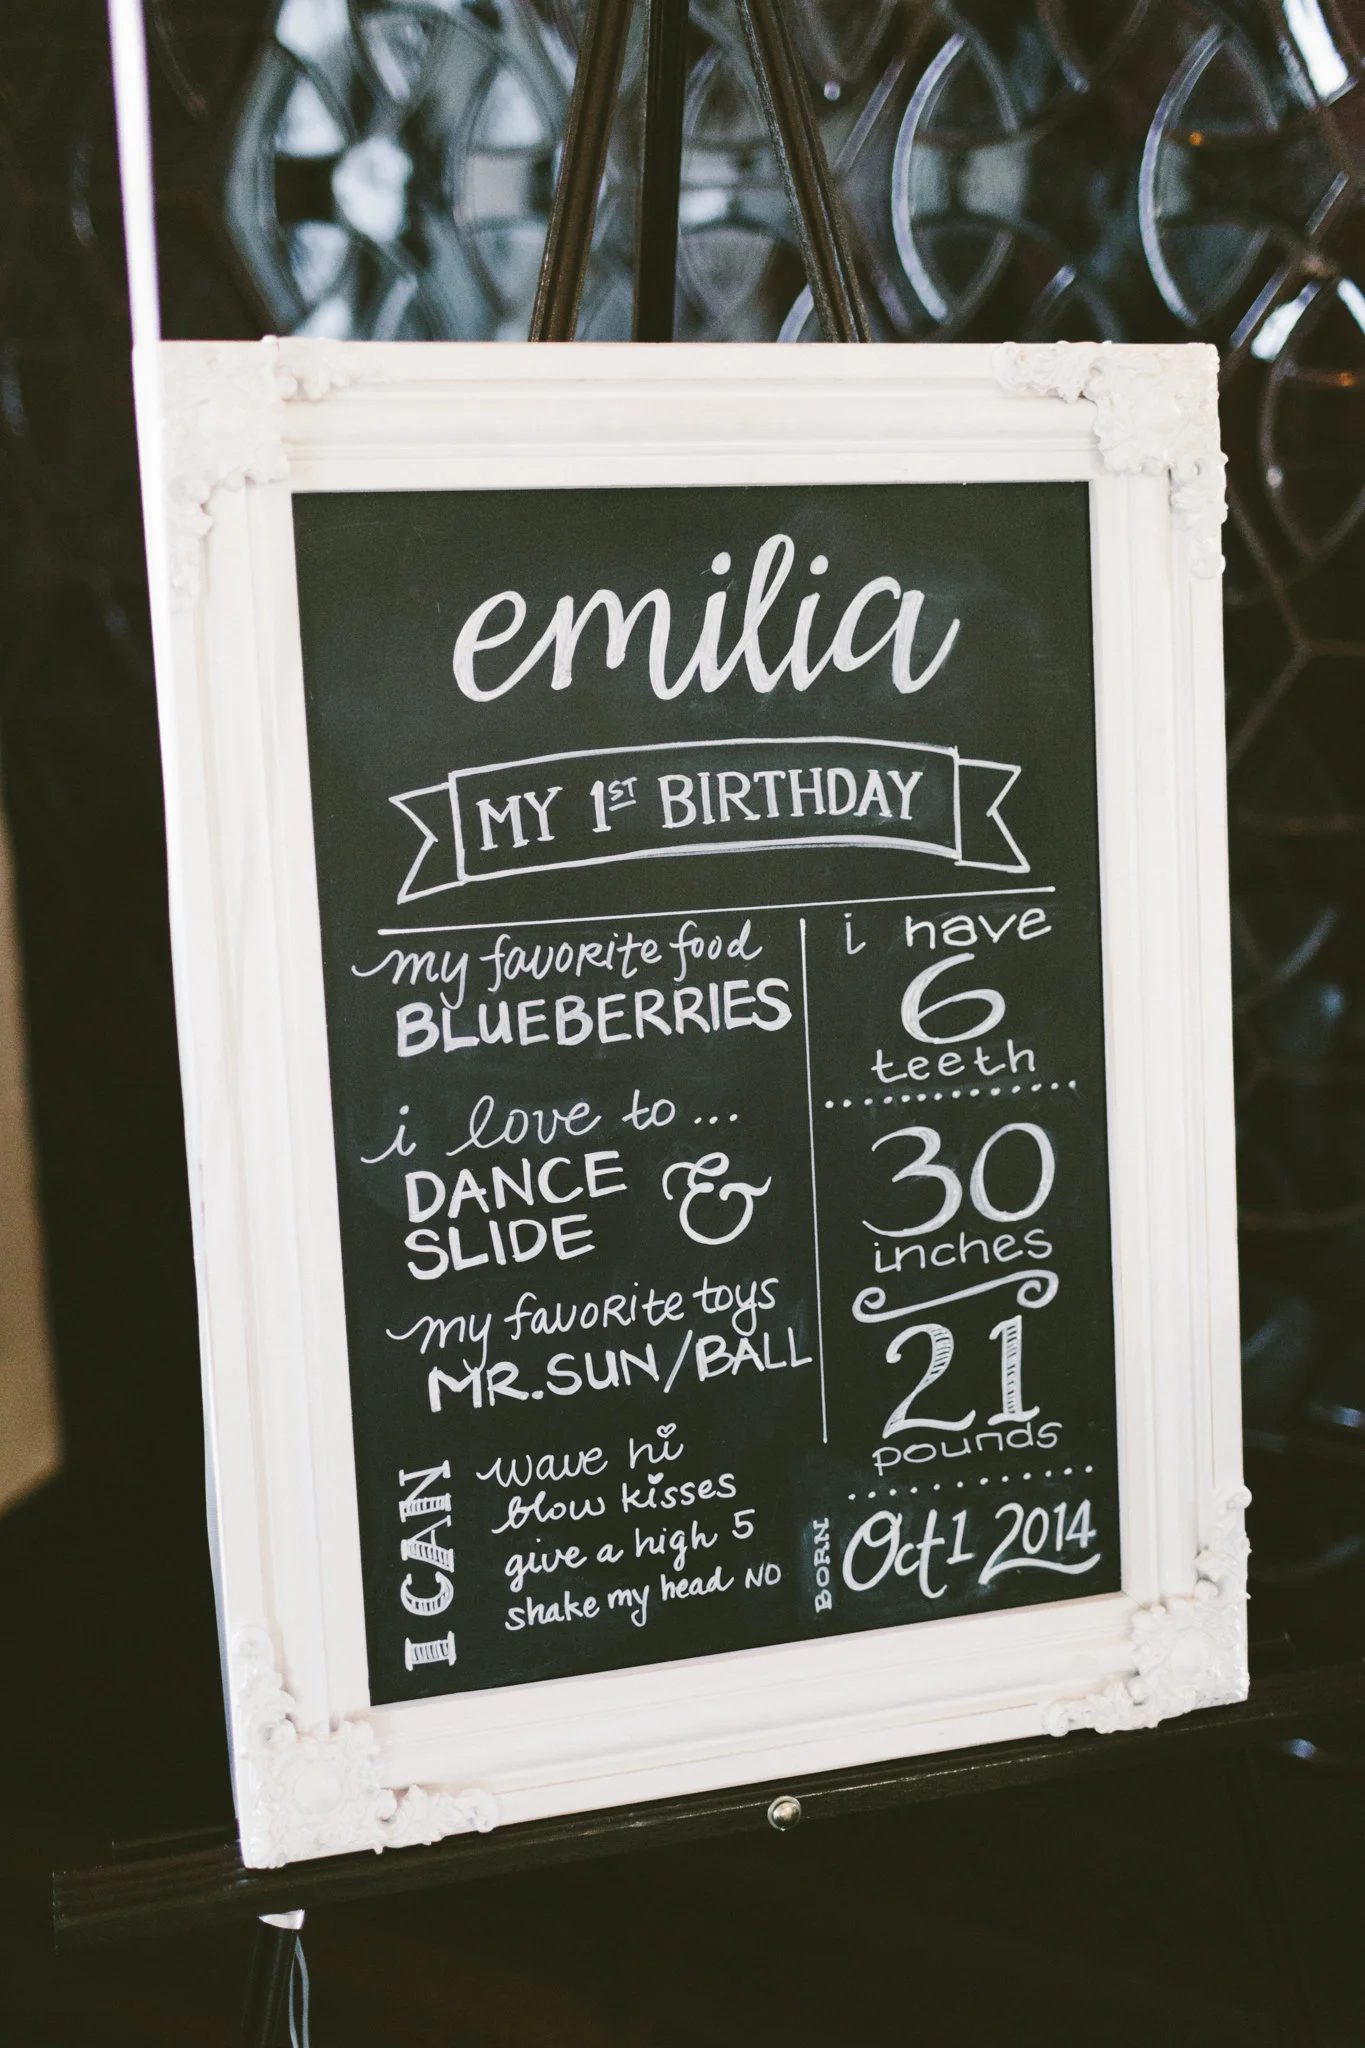 emilia
MY 1ST BIRTHDAY
my favorite food
BLUEBERRIES
i love to...
DANCE &
SLIDE
my favorite toys
MR. SUN/BALL
I CAN
wave hi
blow kisses
give a high 5
shake my head NO
i have
6
teeth
30
inches
21
pounds
BORN
Oct 1 2014